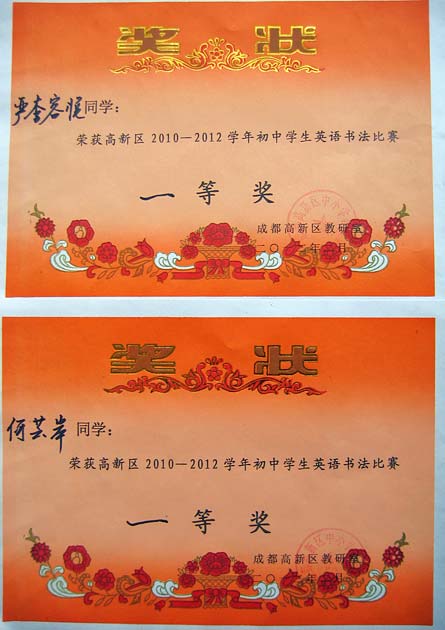 奖 状
严李容悦同学:
荣获高新区 2010—2012 学年初中学生英语书法比赛
一 等 奖
成都高新区教研室
奖 状
何芸岸 同学:
荣获高新区 2010—2012 学年初中学生英语书法比赛
一 等 奖
成都高新区教研室